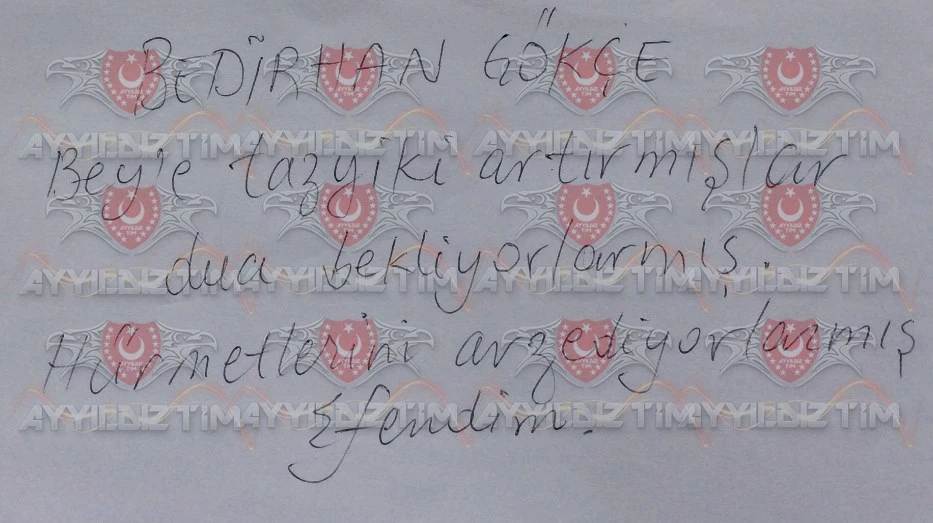 BEDİRHAN GÖKÇE
Beyle tazyiki artırmışlar
dua bekliyorlarmış.
Hürmetlerini arzediyorlarmış
Efendim.
AYYILDIZ TİM AYYILDIZ TİM AYYILDIZ TİM AYYILDIZ TİM
AYYILDIZ TİM AYYILDIZ TİM AYYILDIZ TİM AYYILDIZ TİM
AYYILDIZ TİM AYYILDIZ TİM AYYILDIZ TİM AYYILDIZ TİM